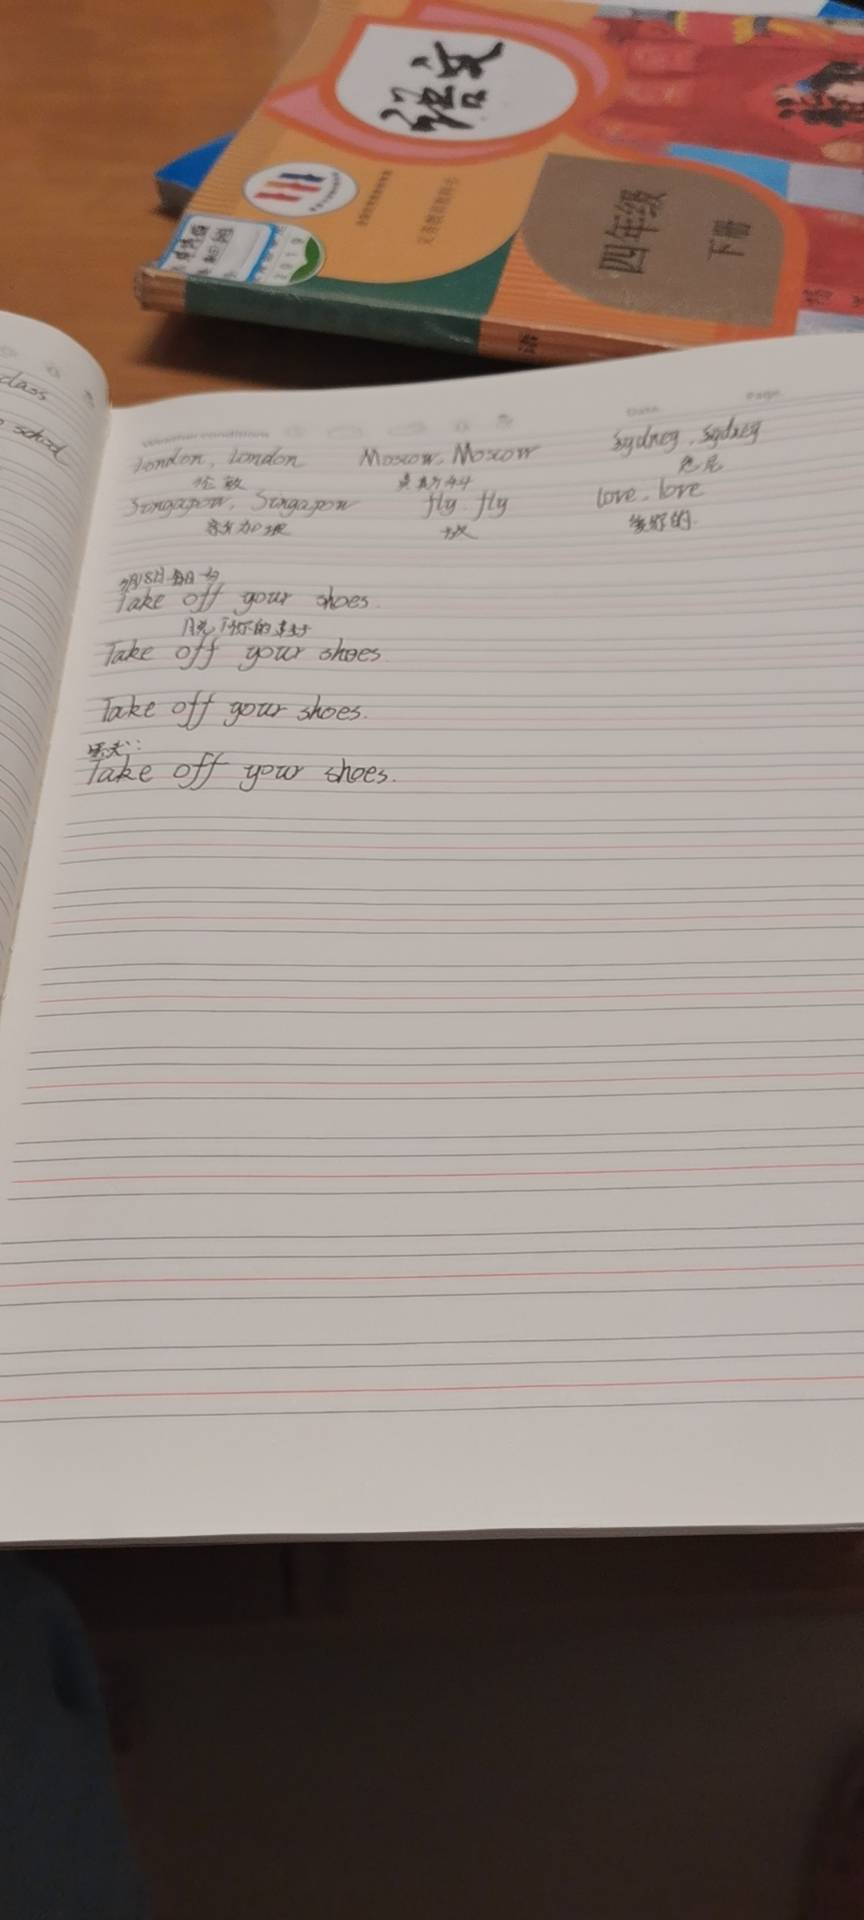 语文
义务教育教科书
四年级
下册
2019
语
class
school
Date
Page
London, London Moscow, Moscow Sydney, Sydney
伦敦 莫斯科 悉尼
Singapow, Singapow fly, fly love, love
新加坡 放
Take off your shoes.
脱下你的鞋
Take off your shoes
Take off your shoes.
Take off your shoes.